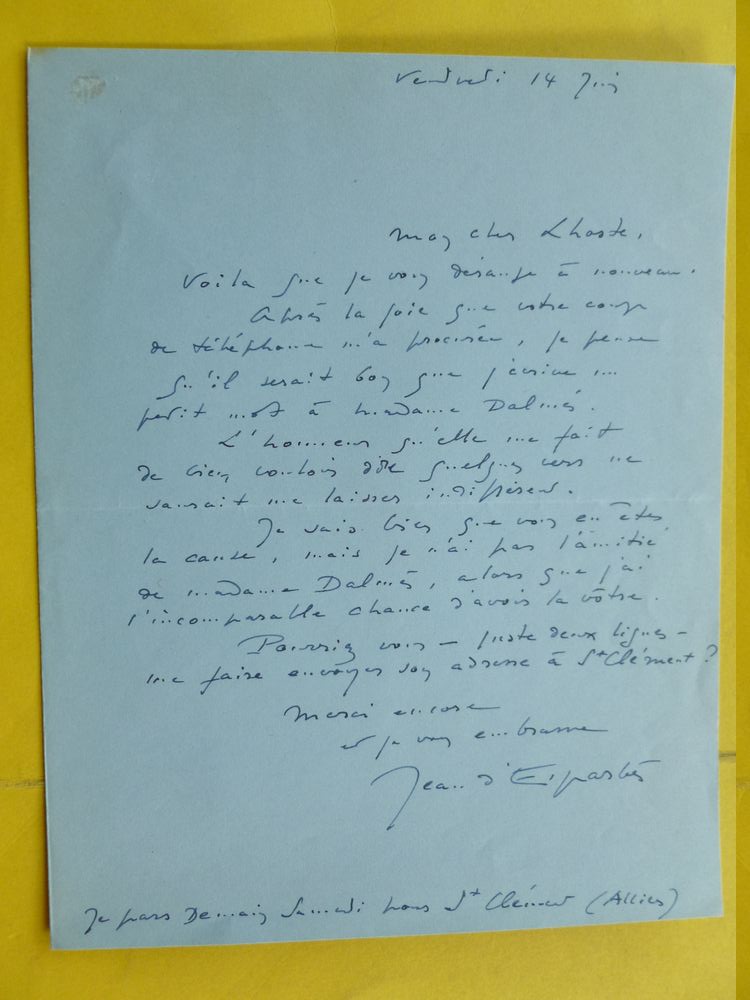 Vendredi 14 Juin
Mon cher Lhoste,
Voilà que je vous dérange à nouveau.
Après la joie que votre coup
de téléphone m'a procurée, je pense
qu'il serait bon que j'écrive un
petit mot à madame Dalmès.
L'honneur qu'elle me fait
de bien vouloir dire quelques vers ne
saurait me laisser indifférent.
Je sais bien que vous en êtes
la cause, mais je n'ai pas l'amitié
de madame Dalmès, alors que j'ai
l'incomparable chance d'avoir la vôtre.
Pourriez vous – juste deux lignes –
me faire envoyer son adresse à St Clément ?
Merci encore
et je vous embrasse
Jean d'Esparbès
Je pars Demain Samedi pour St Clément (Allier)